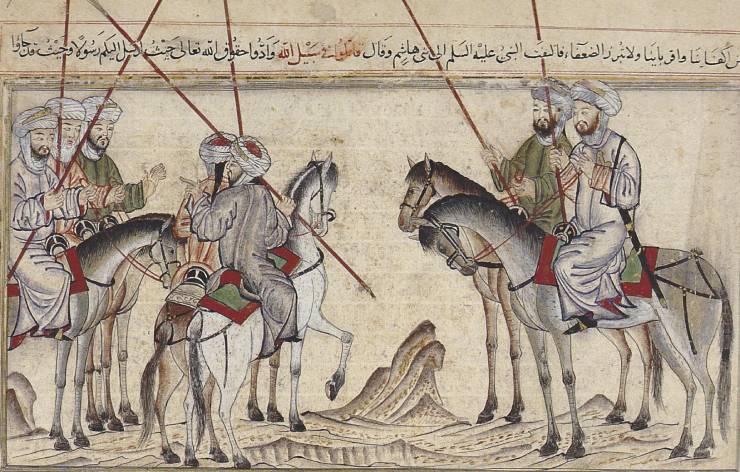 من اكفائنا واقربائنا ولا نبرز الضعفاء فالتفت النبي عليه السلم الى بني هاشم وقال قاتلوا في سبيل الله وادّوا حقوق الله تعالى حيث ارسل اليكم رسولا وحيث قد جاؤا